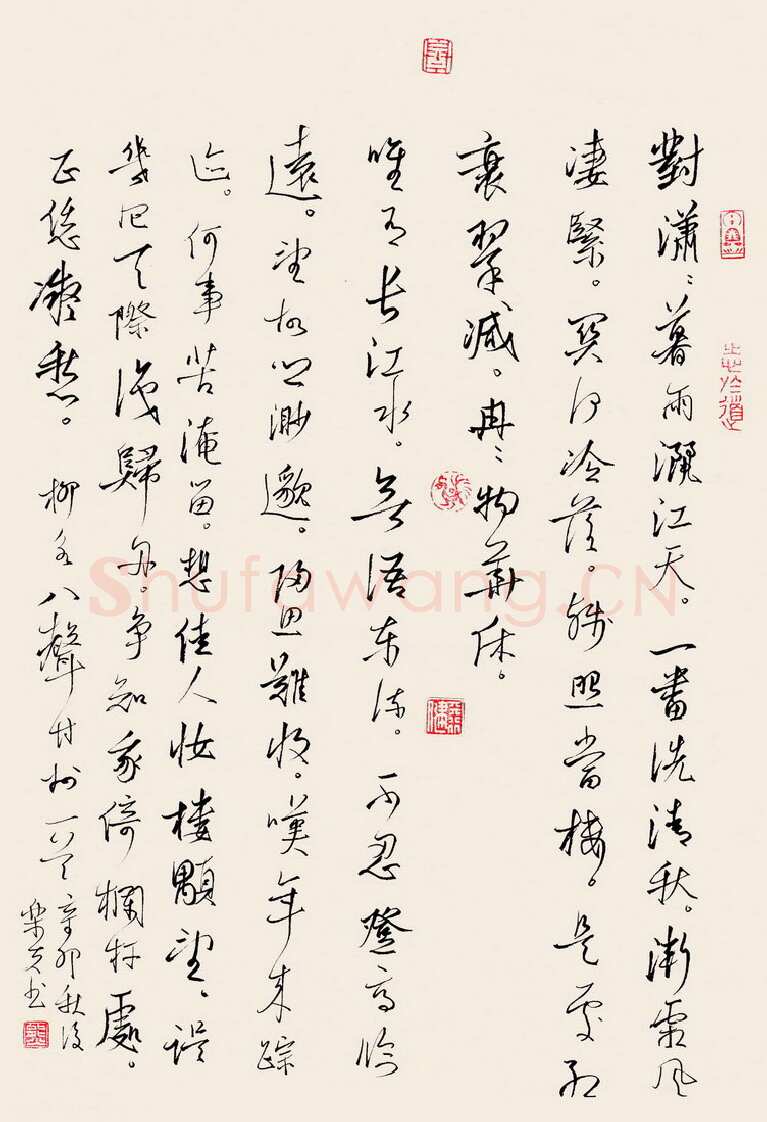 對瀟〻暮雨灑江天。一番洗清秋。漸霜風
凄緊。関河冷落。殘照當楼。是處紅
衰翠减。冉〻物華休。
唯有長江水。無語东流。不忍登高临
遠。望故鄉渺邈。歸思難收。嘆年来踪
迹。何事苦淹留。想佳人妝楼顒望、誤
幾回天際識歸舟。争知我倚欄杆處。
正恁凝愁。柳永八聲甘州一首 辛卯秋後
书
Shufawang.CN